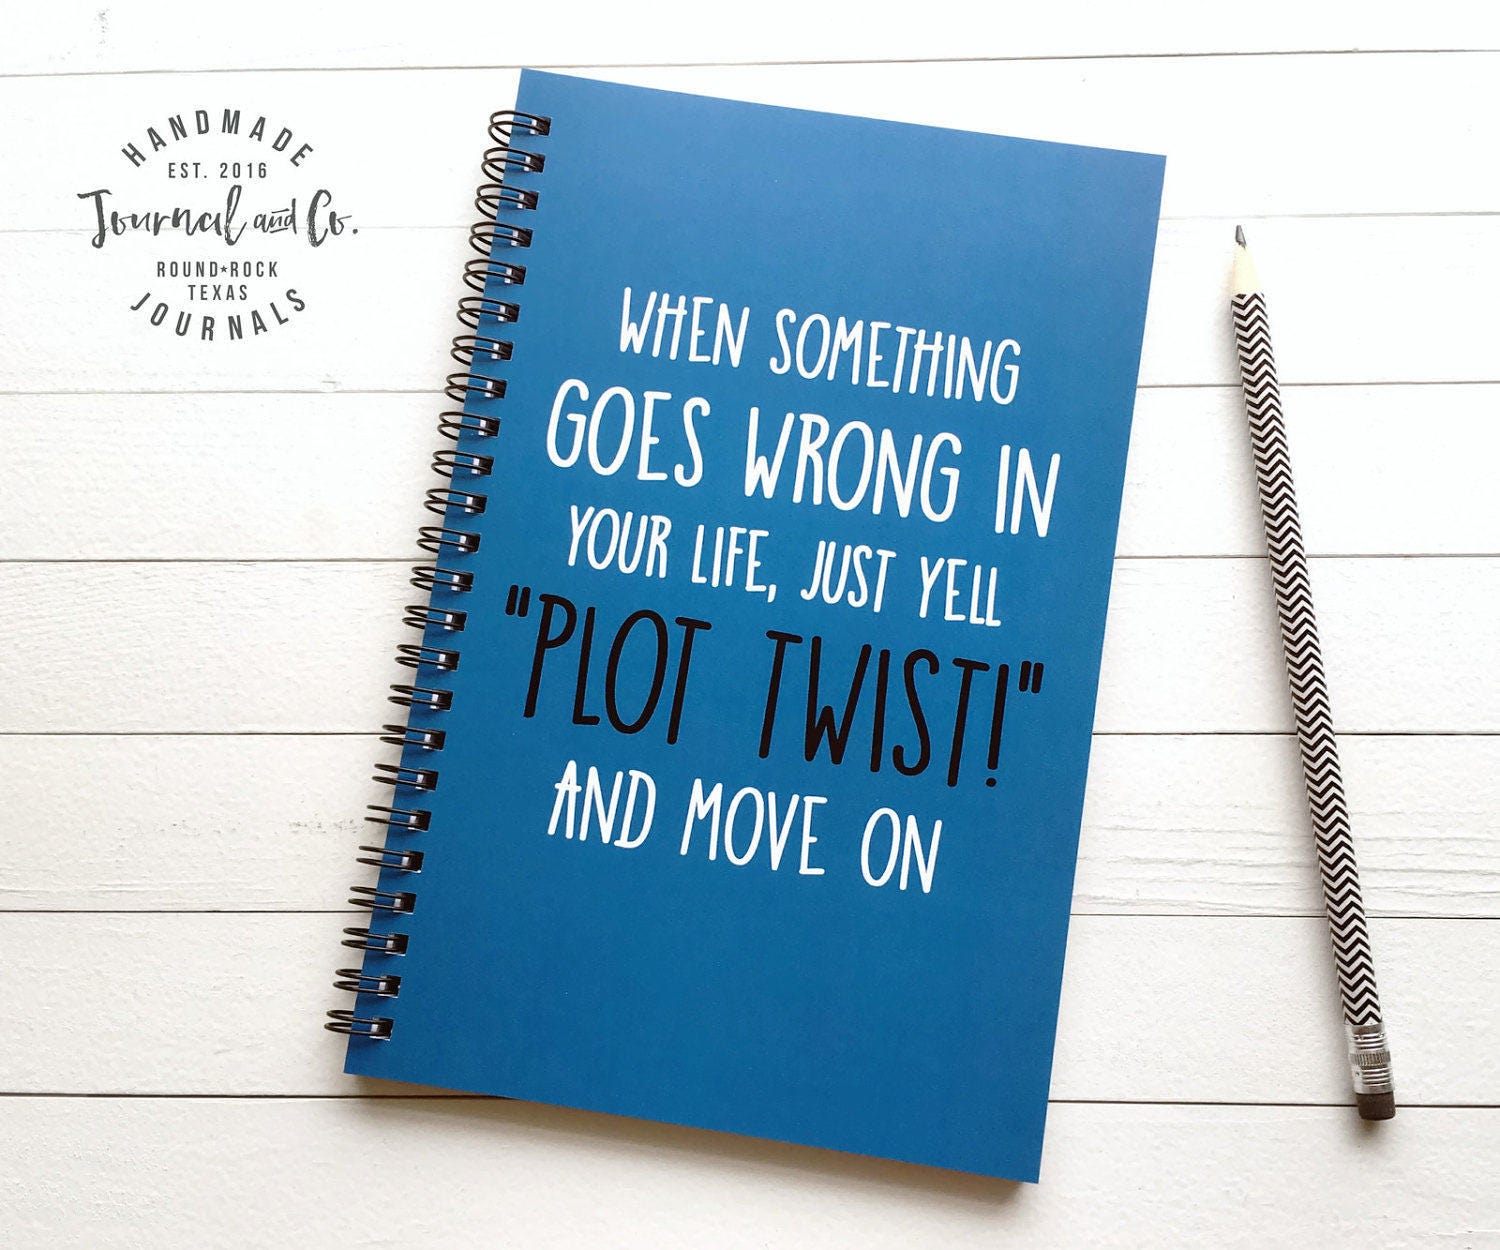 HANDMADE
EST. 2016
Journal and Co.
ROUND★ROCK
TEXAS
JOURNALS
WHEN SOMETHING
GOES WRONG IN
YOUR LIFE, JUST YELL
"PLOT TWIST!"
AND MOVE ON